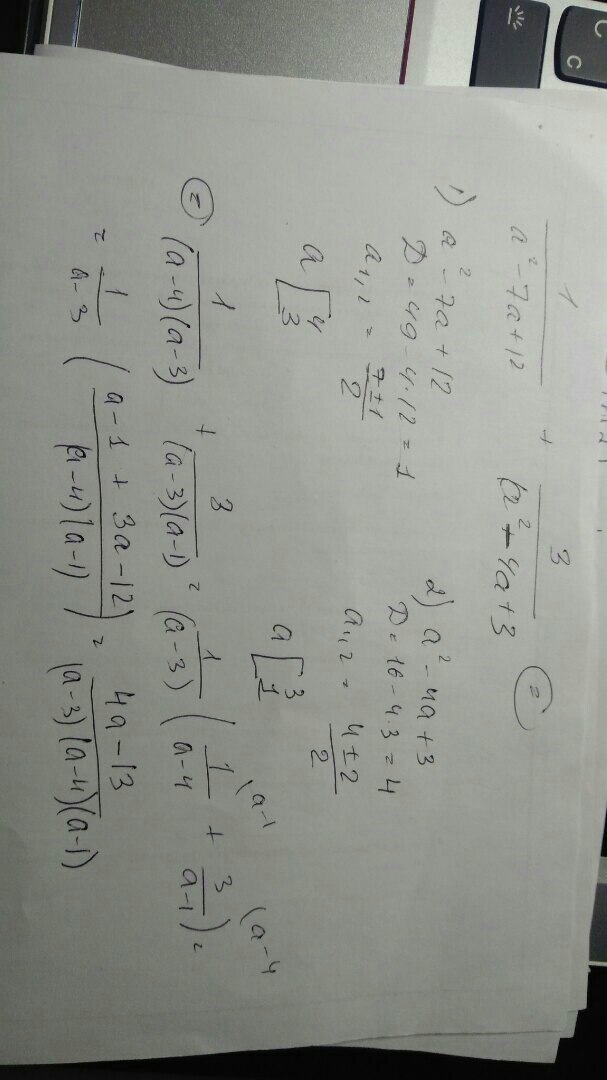 1/(a² - 7a + 12) + 3/(a² - 4a + 3) ⊜
1) a² - 7a + 12
D = 49 - 4·12 = 1
a₁,₂ = (7 ± 1)/2
a [ 4 3
2) a² - 4a + 3
D = 16 - 4·3 = 4
a₁,₂ = (4 ± 2)/2
a [ 3 1
⊜ 1/((a-4)(a-3)) + 3/((a-3)(a-1)) = 1/(a-3) ( 1/(a-4) (a-1 + 3/(a-1) (a-4 ) =
= 1/(a-3) ( (a - 1 + 3a - 12)/((a-4)(a-1)) ) = (4a - 13)/((a-3)(a-4)(a-1))